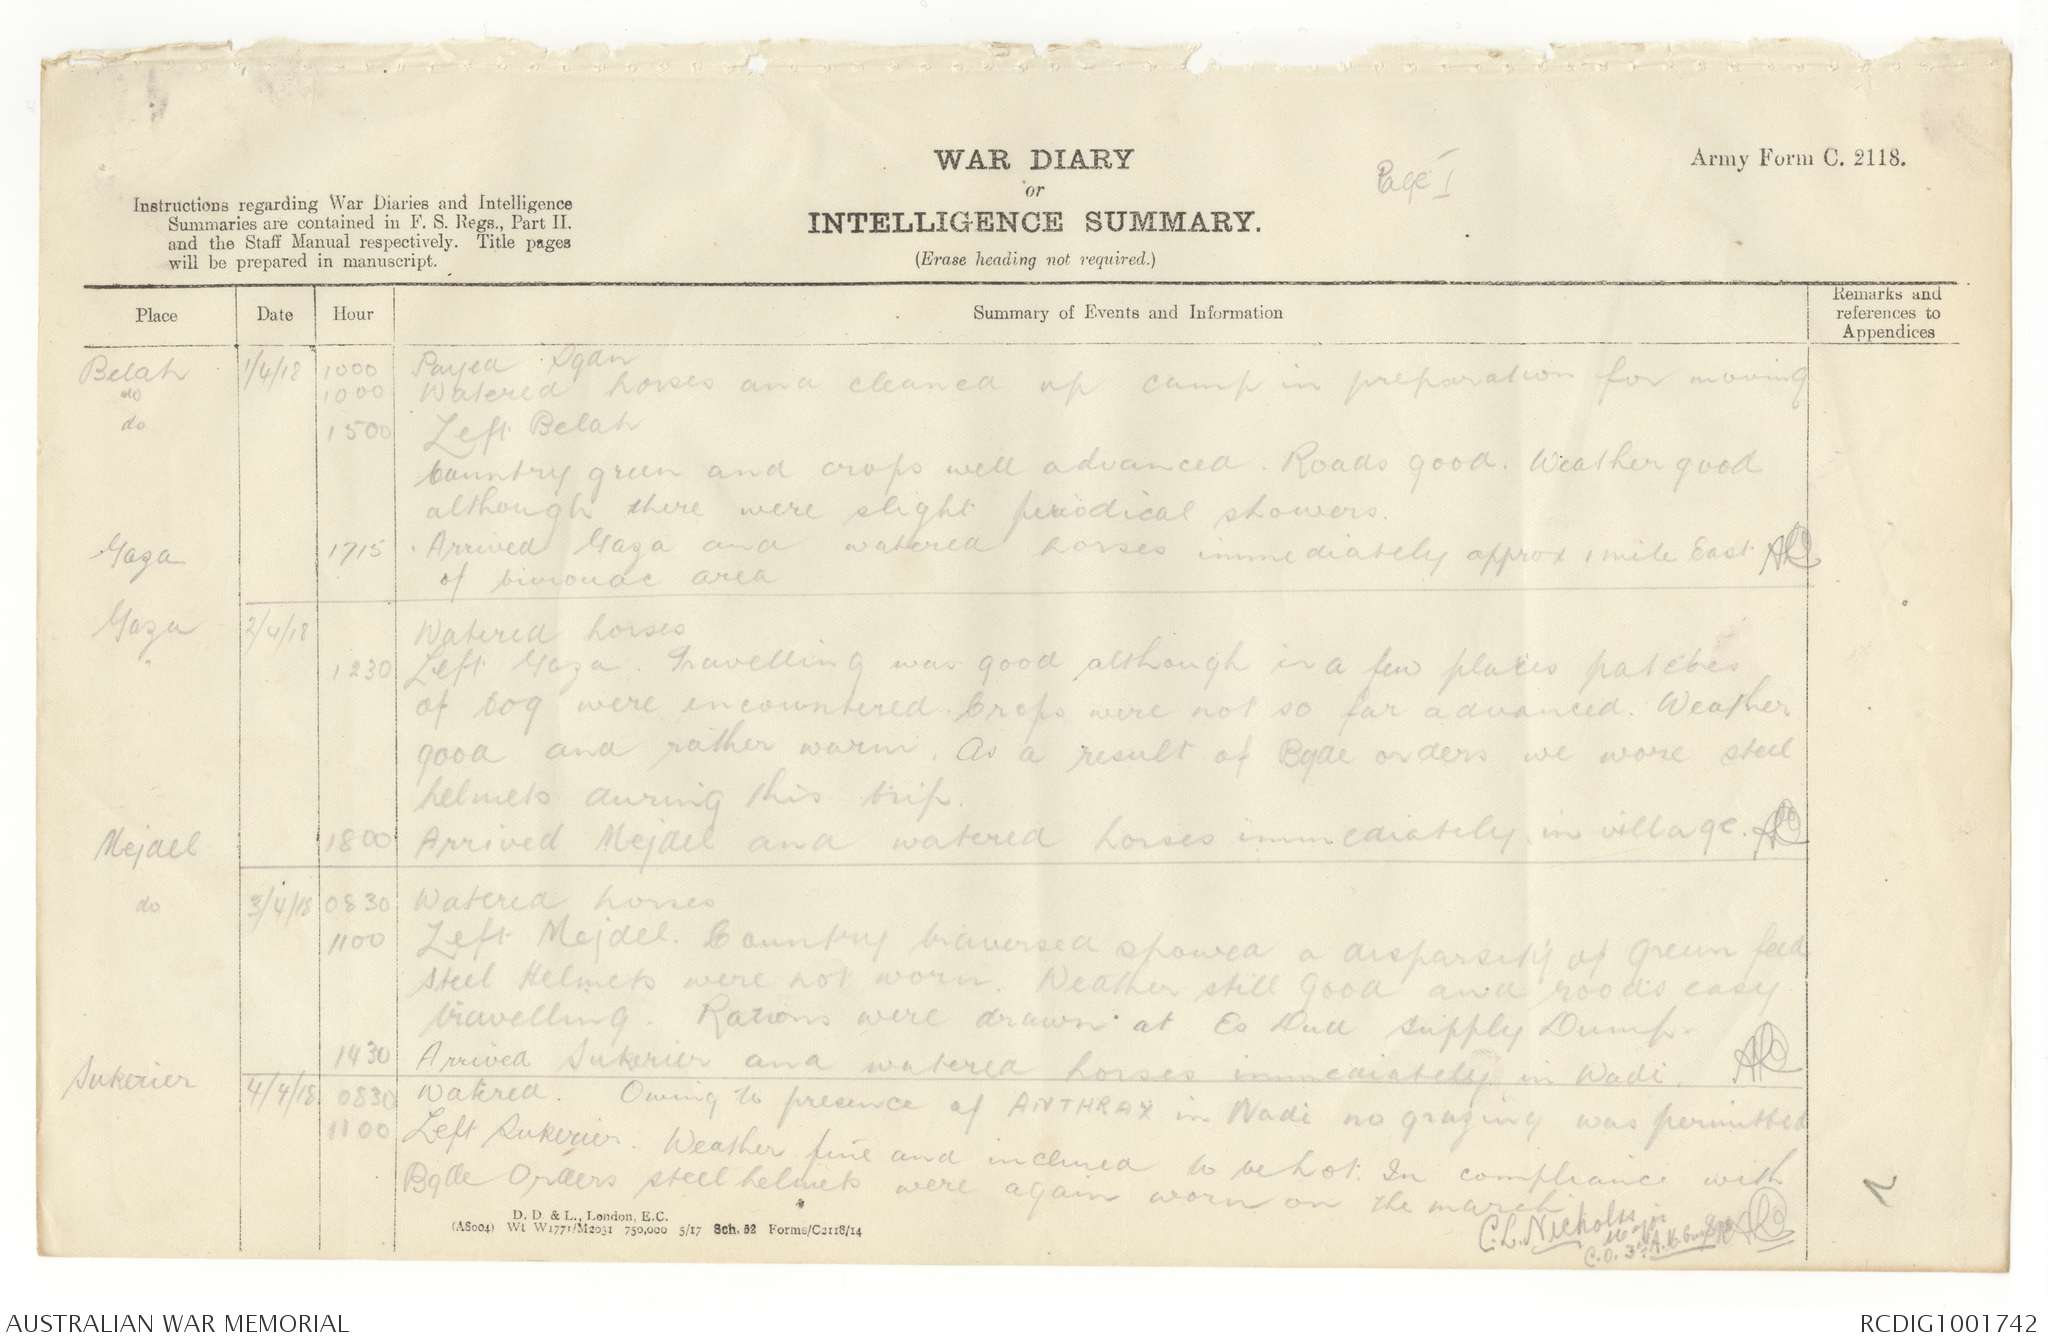 WAR DIARY
or
INTELLIGENCE SUMMARY.
(Erase heading not required.)
Page I
Army Form C. 2118.
Instructions regarding War Diaries and Intelligence
Summaries are contained in F. S. Regs., Part II.
and the Staff Manual respectively. Title pages
will be prepared in manuscript.
Place Date Hour Summary of Events and Information Remarks and references to Appendices
Belah 1/4/18 1000 Payed Sqdn
do 1000 Watered horses and cleaned up camp in preparation for moving
do 1500 Left Belah
Country green and crops well advanced. Roads good. Weather good
although there were slight periodical showers.
Gaza 1715 Arrived Gaza and watered horses immediately approx 1 mile East
of bivouac area
Gaza 2/4/18 Watered horses
" 1230 Left Gaza. Travelling was good although in a few places patches
of bog were encountered. Crops were not so far advanced. Weather
good and rather warm. As a result of Bgde orders we wore steel
helmets during this trip.
Mejdel 1800 Arrived Mejdel and watered horses immediately in village.
do 3/4/18 0830 Watered horses
1100 Left Mejdel. Country traversed showed a disparsity of green feed
Steel Helmets were not worn. Weather still good and roads easy
travelling. Rations were drawn at Es Dud Supply Dump.
1430 Arrived Sukerier and watered horses immediately in Wadi.
Sukerier 4/4/18 0830 Watered. Owing to presence of ANTHRAX in Wadi no grazing was permitted
1100 Left Sukerier. Weather fine and inclined to be hot. In compliance with
Bgde Orders steel helmets were again worn on the march
C.L. Nicholls Major
C.O. 3rd A.
D. D & L., London, E.C.
(A8004) Wt W1771/M2031 750,000 5/17 Sch. 52 Forms/C2118/14
2
AUSTRALIAN WAR MEMORIAL
RCDIG1001742